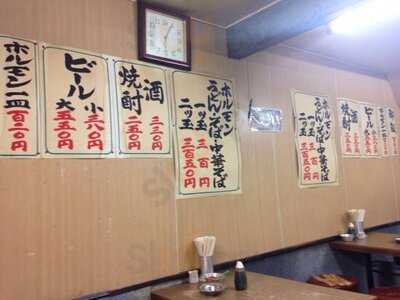 ホルモン一皿
百二〇円
ビール
小 三八〇円
大 五五〇円
酒 三三〇円
焼酎 二五〇円
ホルモン
うどん・そば・中華そば
一ッ玉 三百円
二ッ玉 三百五〇円
ホルモン
うどん・そば・中華そば
一ッ玉 三百円
二ッ玉 三百五〇円
酒
焼酎
ビール